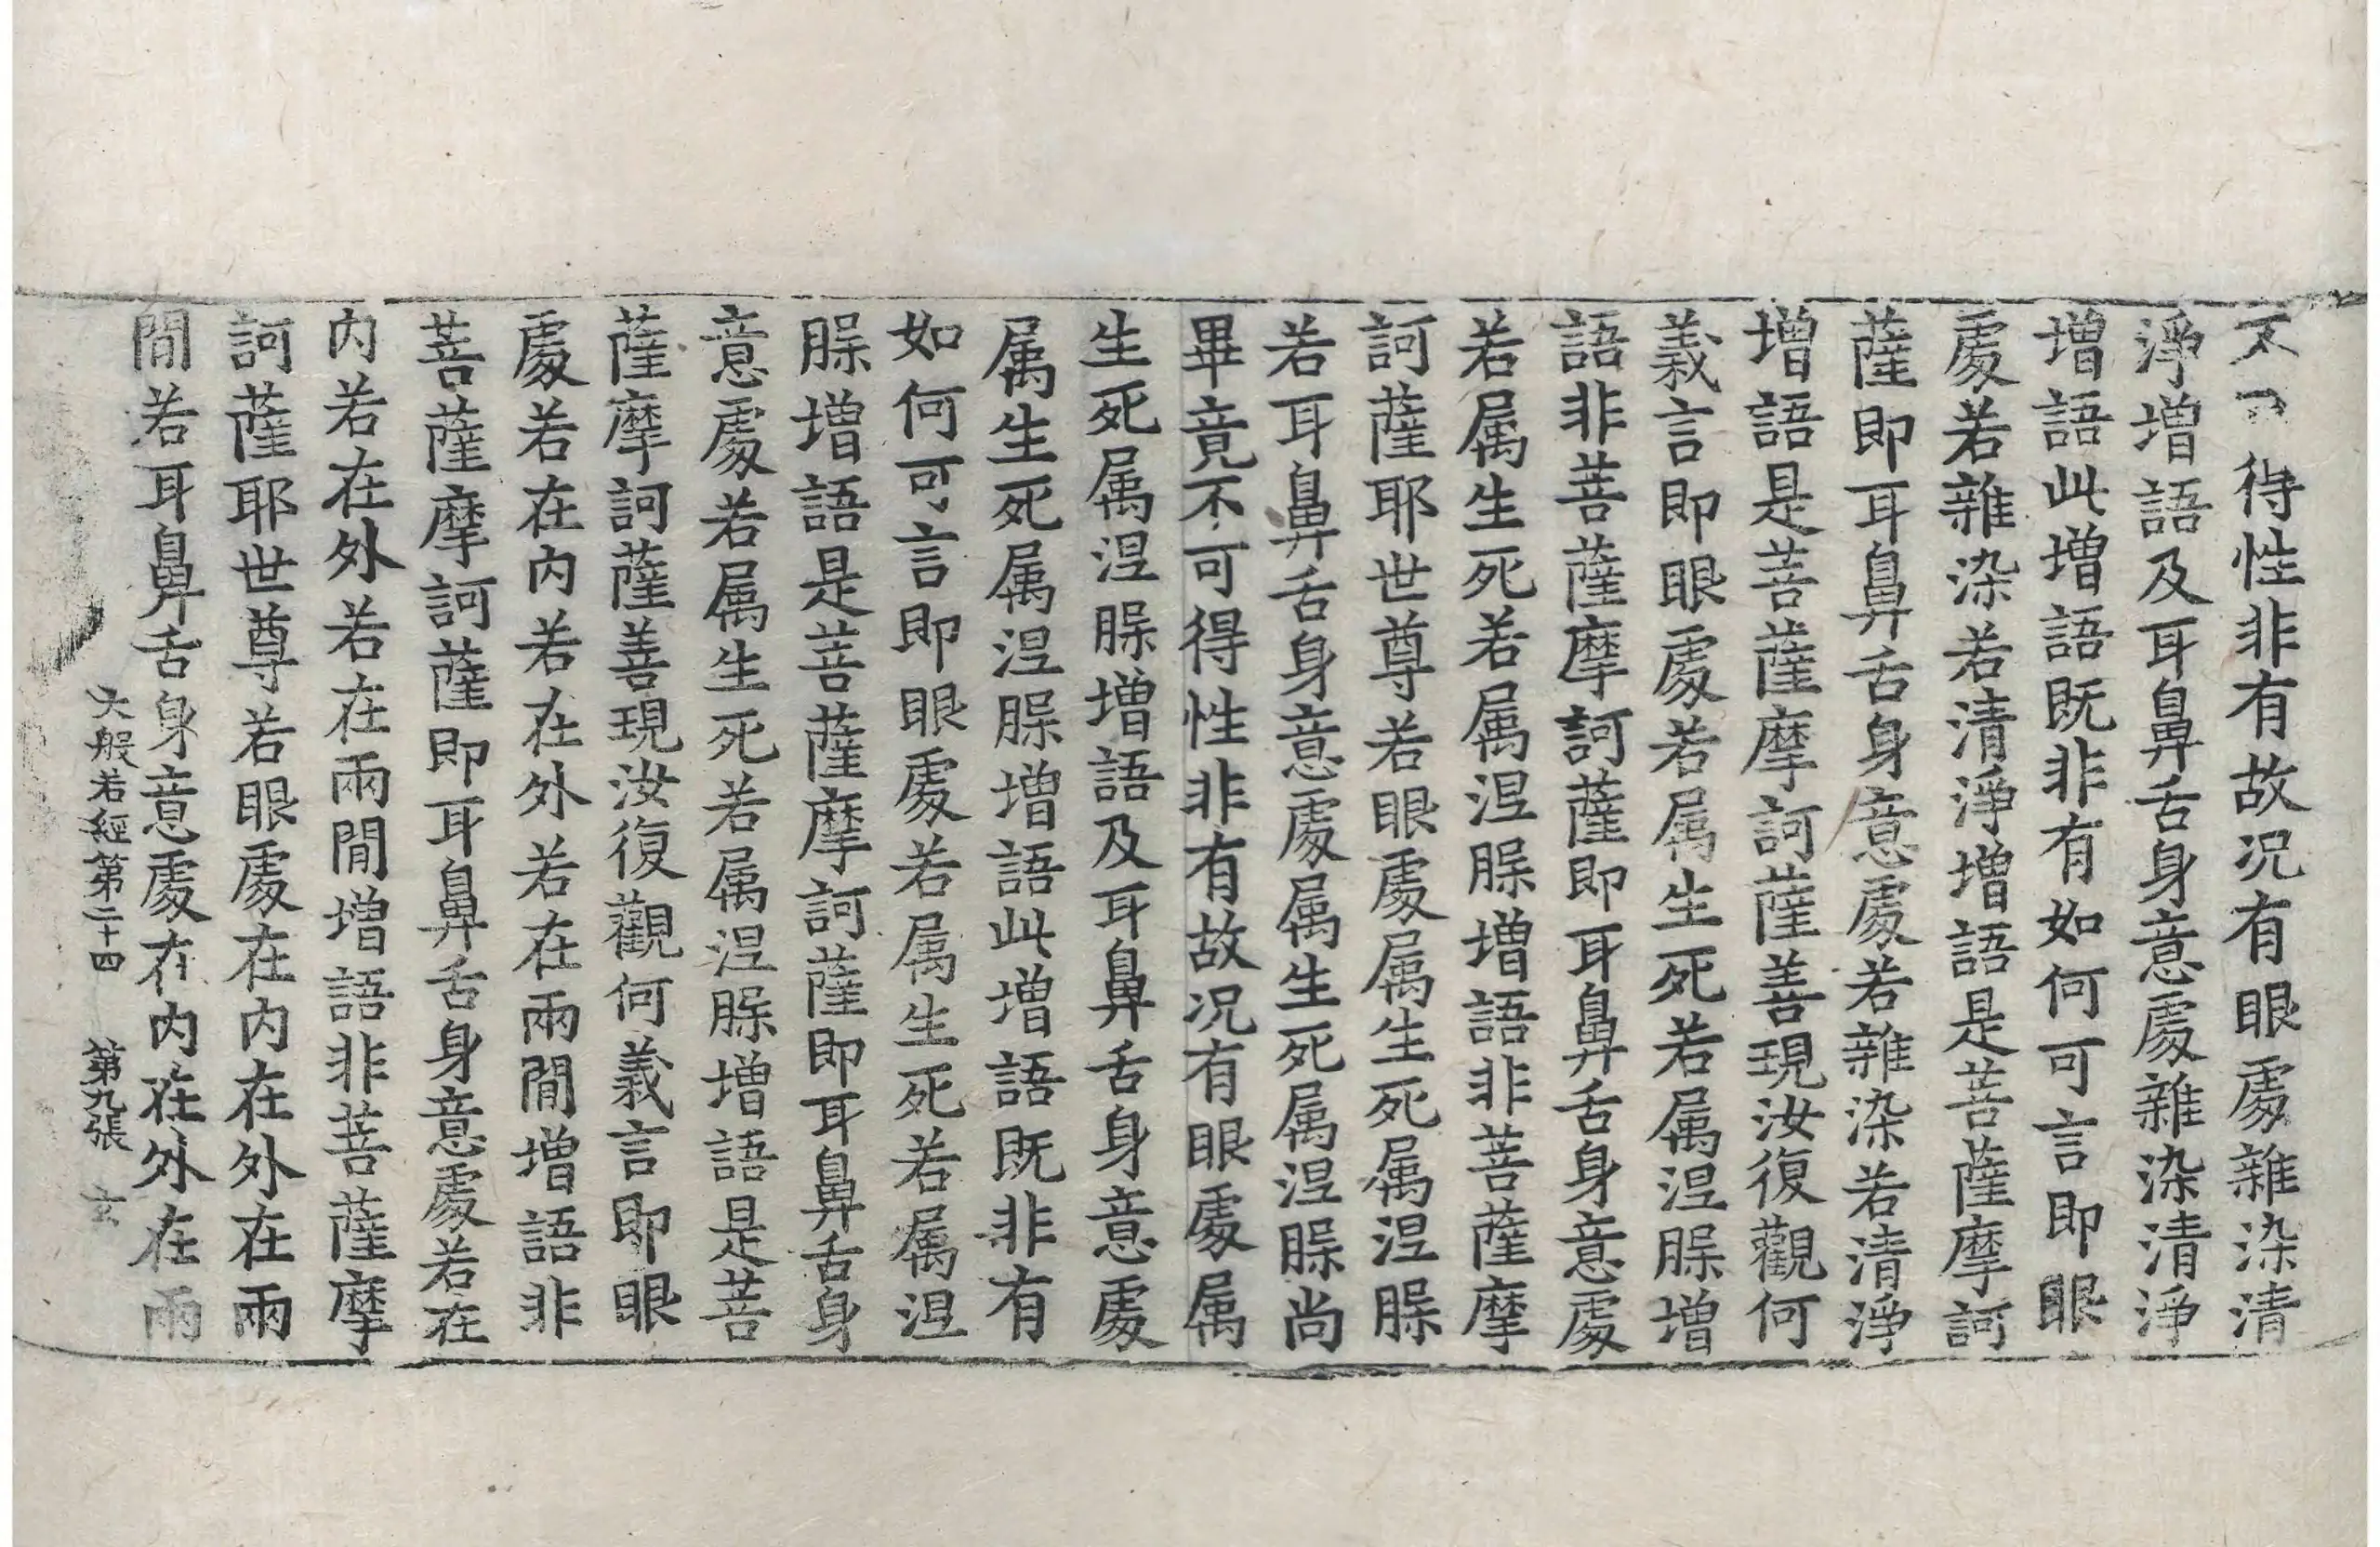 不可得性非有故况有眼處雜染清
淨增語及耳鼻舌身意處雜染清淨
增語此增語既非有如何可言即眼
處若雜染若清淨增語是菩薩摩訶
薩即耳鼻舌身意處若雜染若清淨
增語是菩薩摩訶薩善現汝復觀何
義言即眼處若属生死若属涅槃增
語非菩薩摩訶薩即耳鼻舌身意處
若属生死若属涅槃增語非菩薩摩
訶薩耶世尊若眼處属生死属涅槃
若耳鼻舌身意處属生死属涅槃尚
畢竟不可得性非有故况有眼處属
生死属涅槃增語及耳鼻舌身意處
属生死属涅槃增語此增語既非有
如何可言即眼處若属生死若属涅
槃增語是菩薩摩訶薩即耳鼻舌身
意處若属生死若属涅槃增語是菩
薩摩訶薩善現汝復觀何義言即眼
處若在内若在外若在兩閒增語非
菩薩摩訶薩即耳鼻舌身意處若在
内若在外若在兩閒增語非菩薩摩
訶薩耶世尊若眼處在内在外在兩
閒若耳鼻舌身意處在内在外在兩
大般若經第二十四 第九張 玄